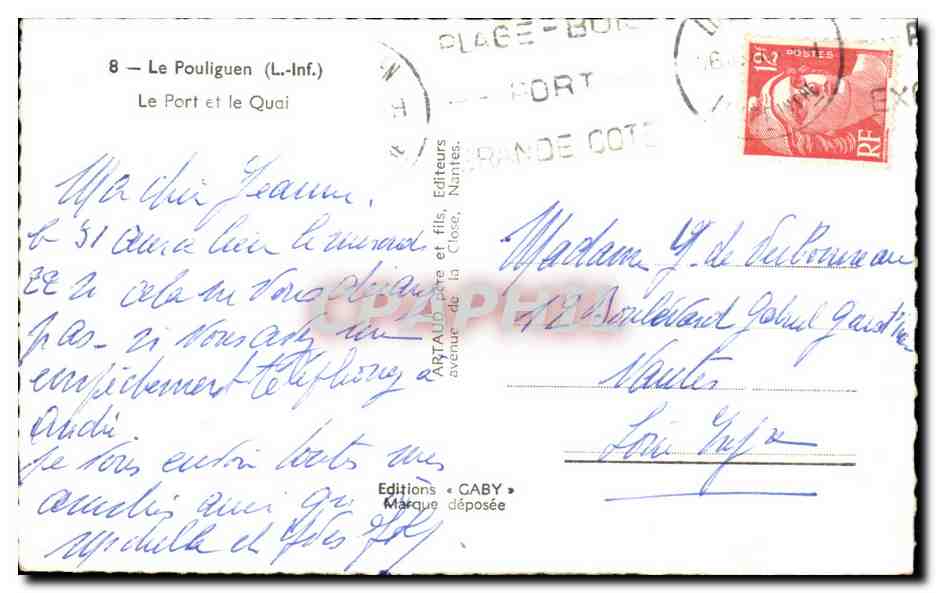 8 — Le Pouliguen (L.-Inf.)
Le Port et le Quai
PLAGE - BOIS
PORT
GRANDE COTE
12F POSTES
RF
Ma chère Jeanne,
le 51 aura lieu le mercredi
22 si cela ne vous dérange
pas - si vous avez un
empêchement téléphonez à
André.
Je vous envoie toutes mes
amitiés ainsi que
Michelle et Yves
ARTAUD père et fils, Editeurs
avenue de la Close, Nantes.
CPAPHIL
Editions « GABY »
Marque déposée
Madame de
12 Boulevard Gabriel
Nantes
Loire Infre